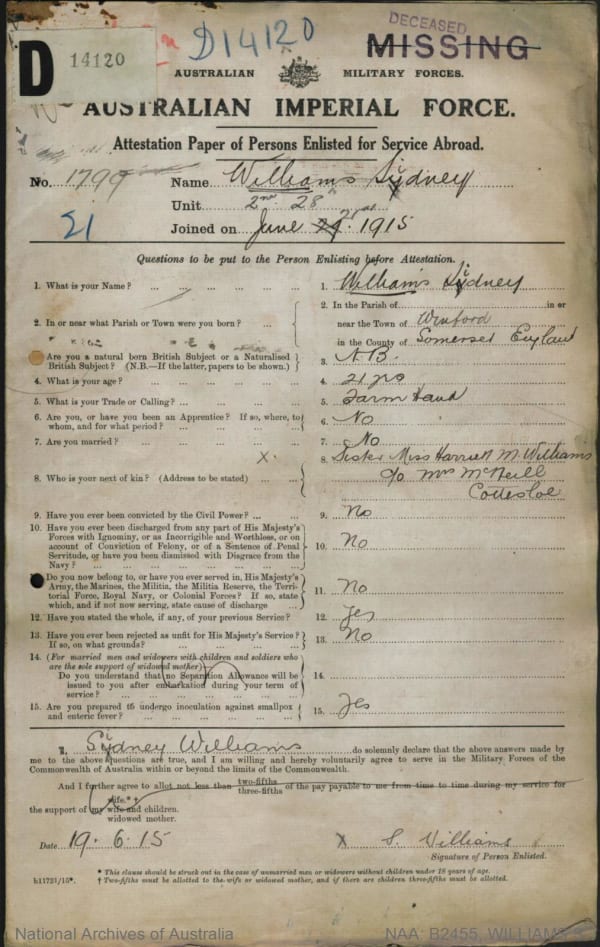 DECEASED
MISSING
D 14120
D14120
AUSTRALIAN MILITARY FORCES.
AUSTRALIAN IMPERIAL FORCE.
Attestation Paper of Persons Enlisted for Service Abroad.
No. 1799 Name Williams Sydney
Unit 2nd 28th
21 Joined on June 21st 1915
Questions to be put to the Person Enlisting before Attestation.
1. What is your Name? ... 1. Williams Sydney
2. In or near what Parish or Town were you born? ... 2. In the Parish of in or
near the Town of Winford
in the County of Somerset England
Are you a natural born British Subject or a Naturalised
British Subject? (N.B.—If the latter, papers to be shown.) 3. N.B.
4. What is your age? ... 4. 21 yrs
5. What is your Trade or Calling? ... 5. Farm Hand
6. Are you, or have you been an Apprentice? If so, where, to
whom, and for what period? ... 6. No
7. Are you married? ... 7. No
X. 8. Sister Miss Harriett M. Williams
8. Who is your next of kin? (Address to be stated) ... c/o Mrs McNeill
Cottesloe
9. Have you ever been convicted by the Civil Power? ... 9. No
10. Have you ever been discharged from any part of His Majesty's
Forces with Ignominy, or as Incorrigible and Worthless, or on
account of Conviction of Felony, or of a Sentence of Penal
Servitude, or have you been Dismissed with Disgrace from the
Navy? ... 10. No
Do you now belong to, or have you ever served in, His Majesty's
Army, the Marines, the Militia, the Militia Reserve, the Terri-
torial Force, Royal Navy, or Colonial Forces? If so, state
which, and if not now serving, state cause of discharge ... 11. No
12. Have you stated the whole, if any, of your previous Service? 12. Yes
13. Have you ever been rejected as unfit for His Majesty's Service?
If so, on what grounds? ... 13. No
14. (For married men and widowers with children and soldiers who
are the sole support of widowed mother)
Do you understand that no Separation Allowance will be
issued to you after embarkation during your term of
service? ... 14.
15. Are you prepared to undergo inoculation against smallpox
and enteric fever? ... 15. Yes
I, Sydney Williams do solemnly declare that the above answers made by
me to the above questions are true, and I am willing and hereby voluntarily agree to serve in the Military Forces of the
Commonwealth of Australia within or beyond the limits of the Commonwealth.
And I further agree to allot not less than two-fifths three-fifths of the pay payable to me from time to time during my service for
the support of my wife.*† wife and children. widowed mother.
Date 19.6.15 X S. Williams
Signature of Person Enlisted.
* This clause should be struck out in the case of unmarried men or widowers without children under 18 years of age.
h11721/15*. † Two-fifths must be allotted to the wife or widowed mother, and if there are children three-fifths must be allotted.
National Archives of Australia NAA: B2455, WILLIAMS S